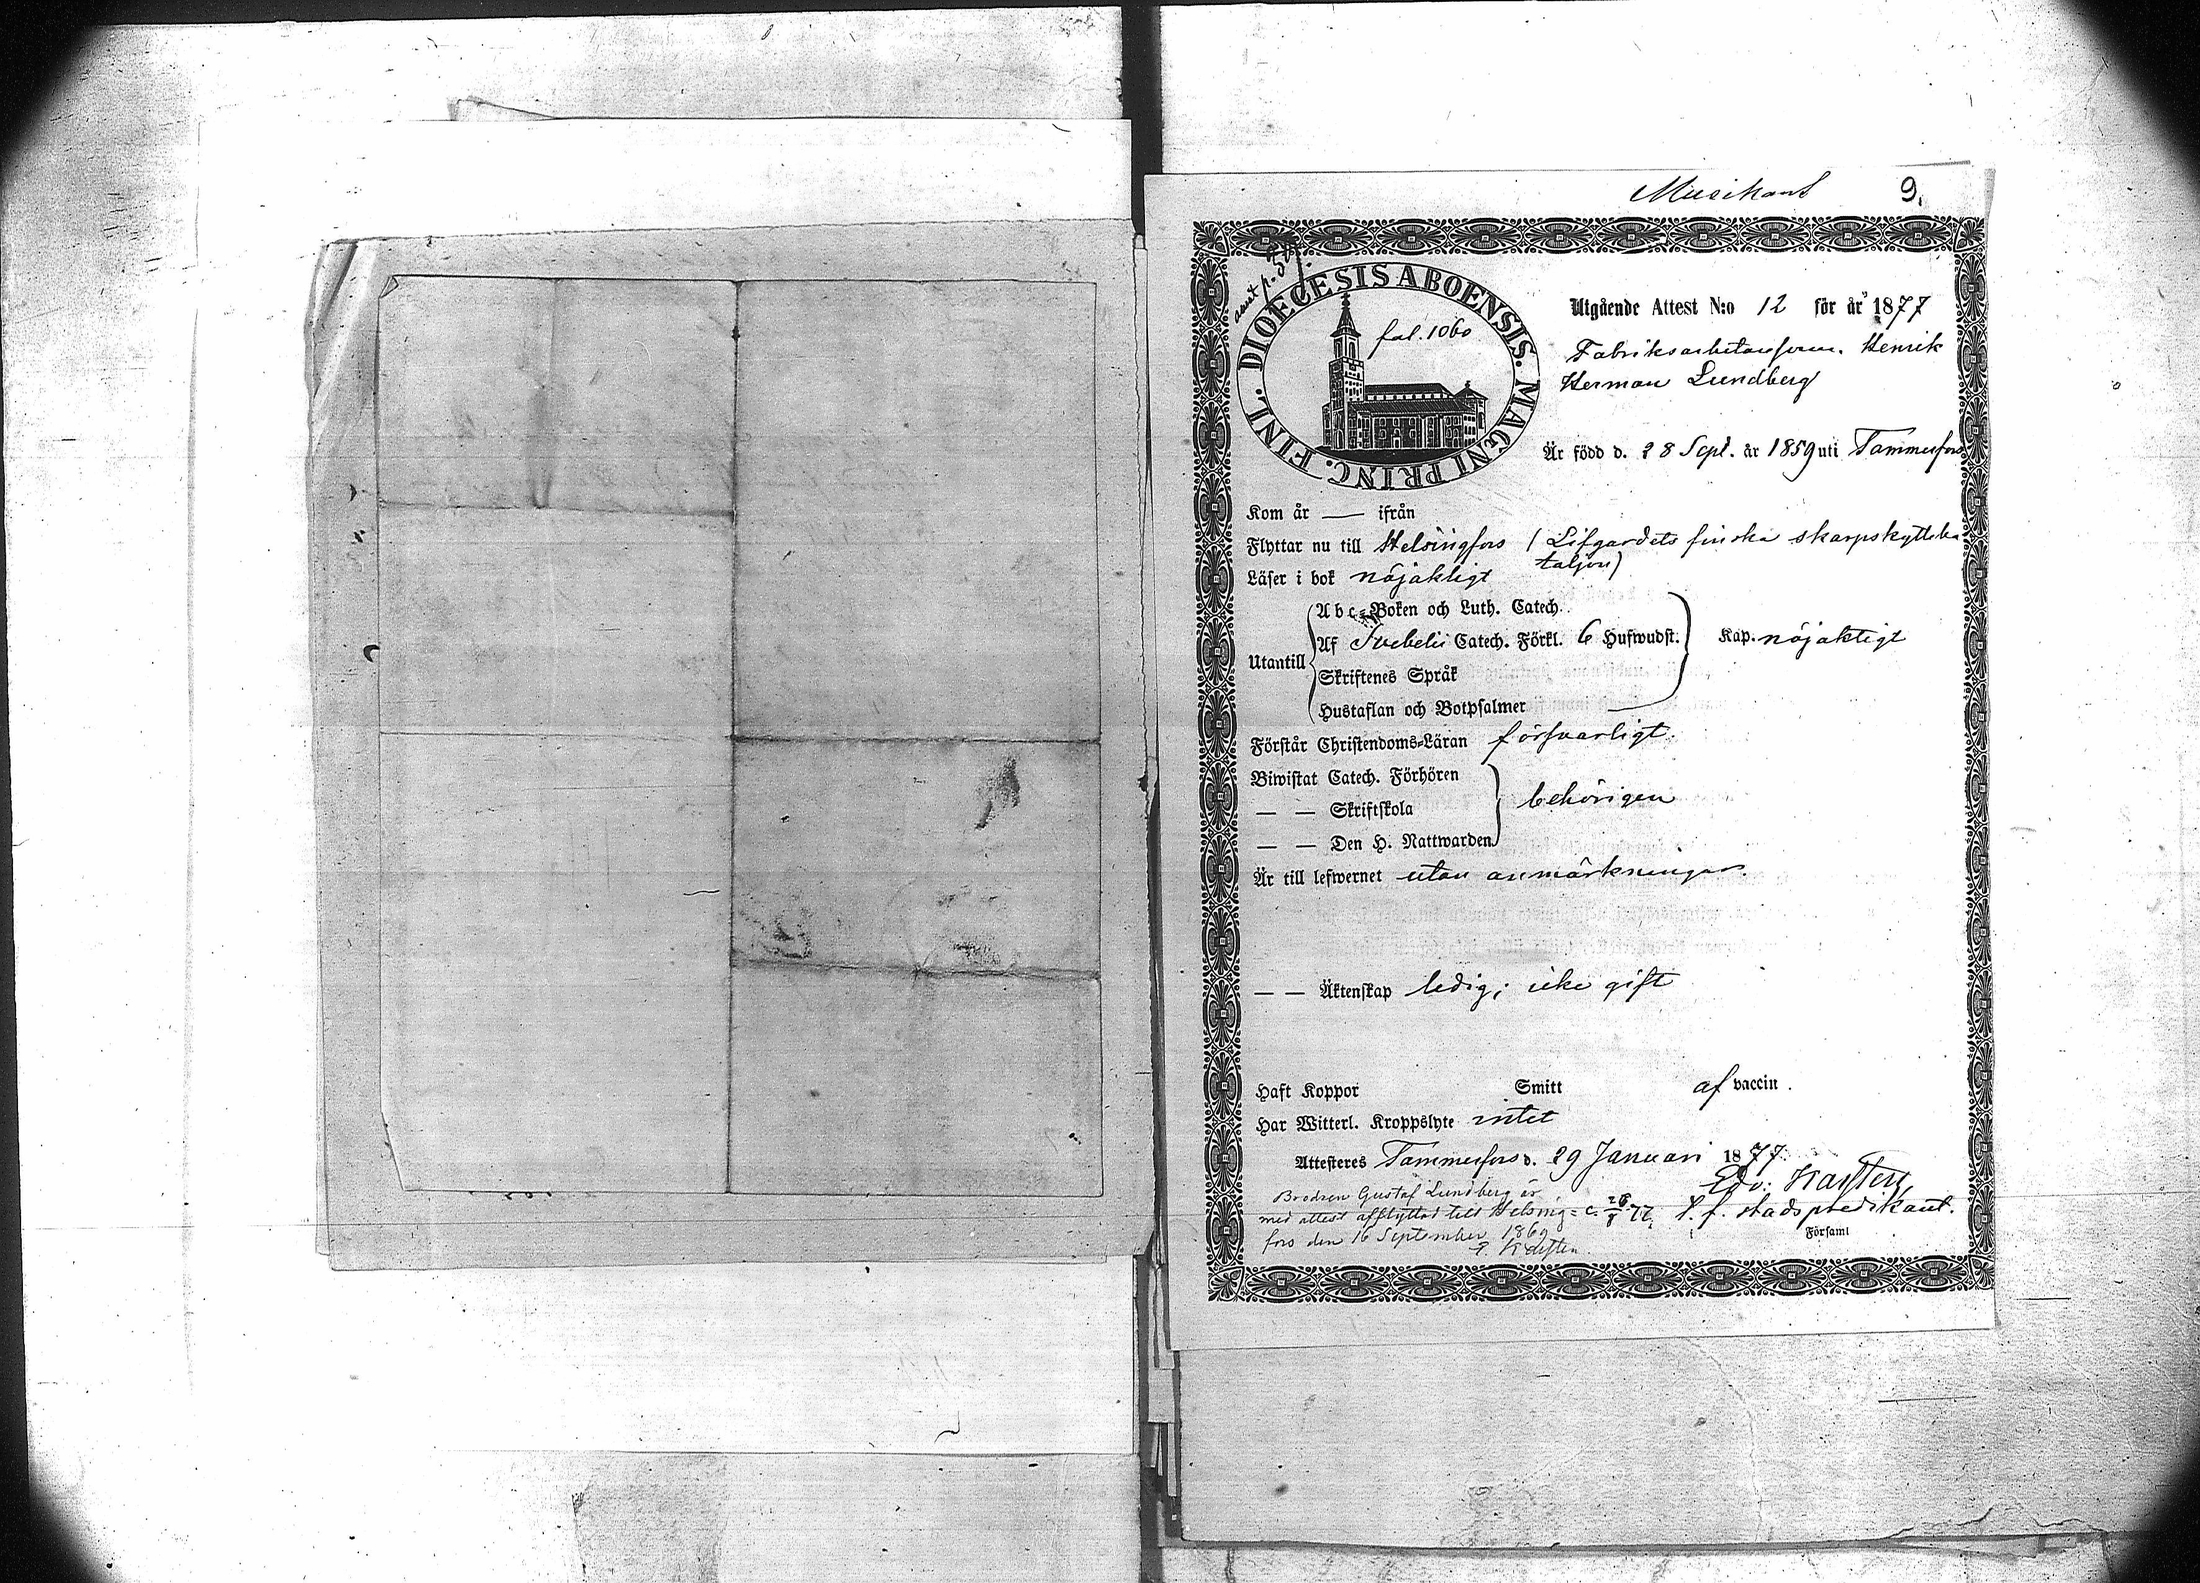 Musikant 9.
DIOECESIS ABOENSIS. MAGNI PRINC. FINL.
fol. 1060
Utgående Attest N:o 12 för år 1877
Fabriksarbetaresonen Henrik
Herman Lundberg
Är född d. 28 Sept. år 1859 uti Tammerfors
Kom år — ifrån
Flyttar nu till Helsingfors (Lifgardets finska skarpskytteba
taljon)
Läser i bok nöjaktigt
Utantill
Abc-Boken och Luth. Catech.
Af Svebelii Catech. Förkl. 6 Hufwudst. Kap. nöjaktigt
Skriftenes Språk
Hustaflan och Botpsalmer
Förstår Christendoms-Läran försvarligt.
Biwistat Catech. Förhören
— — Skriftskola behörigen
— — Den H. Nattwarden
Är till lefwernet utan anmärkningar.
— — Äktenskap ledig; icke gift
Haft Koppor Smitt af vaccin.
Har Witterl. Kroppslyte intet
Attesteres Tammerfors d. 29 Januari 1877.
Edv: Karsten
t. f. stadspredikant.
Församl
Brodren Gustaf Lundberg är
med attest afflyttad till Helsing=
fors den 16 September 1869
E. Karsten